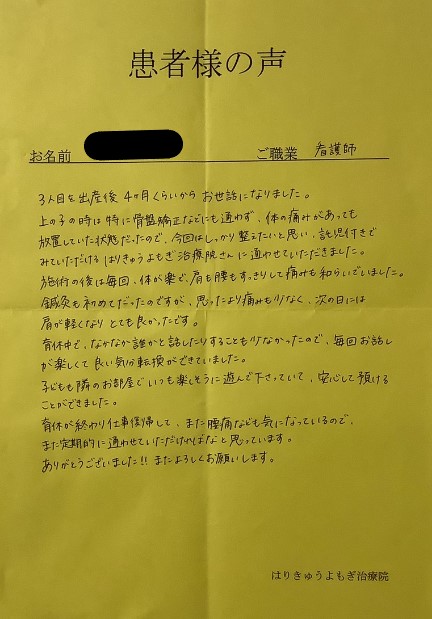 患者様の声
お名前 ご職業 看護師
3人目を出産後 4ヶ月くらいからお世話になりました。
上の子の時は特に骨盤矯正などにも通わず、体の痛みがあっても
放置していた状態だったので、今回はしっかり整えたいと思い、託児付きで
みていただける はりきゅうよもぎ治療院さんに通わせていただきました。
施術の後は毎回、体が楽で、肩も腰もすっきりして痛みも和らいでいました。
鍼灸も初めてだったのですが、思ったより痛みも少なく、次の日には
肩が軽くなり とても良かったです。
育休中で、なかなか誰かと話したりすることも少なかったので、毎回お話し
が楽しくて良い気分転換ができていました。
子どもも隣のお部屋でいつも楽しそうに遊んで下さっていて、安心して預ける
ことができました。
育休が終わり仕事復帰して、また腰痛なども気になっているので、
また定期的に通わせていただければなと思っています。
ありがとうございました!! またよろしくお願いします。
はりきゅうよもぎ治療院